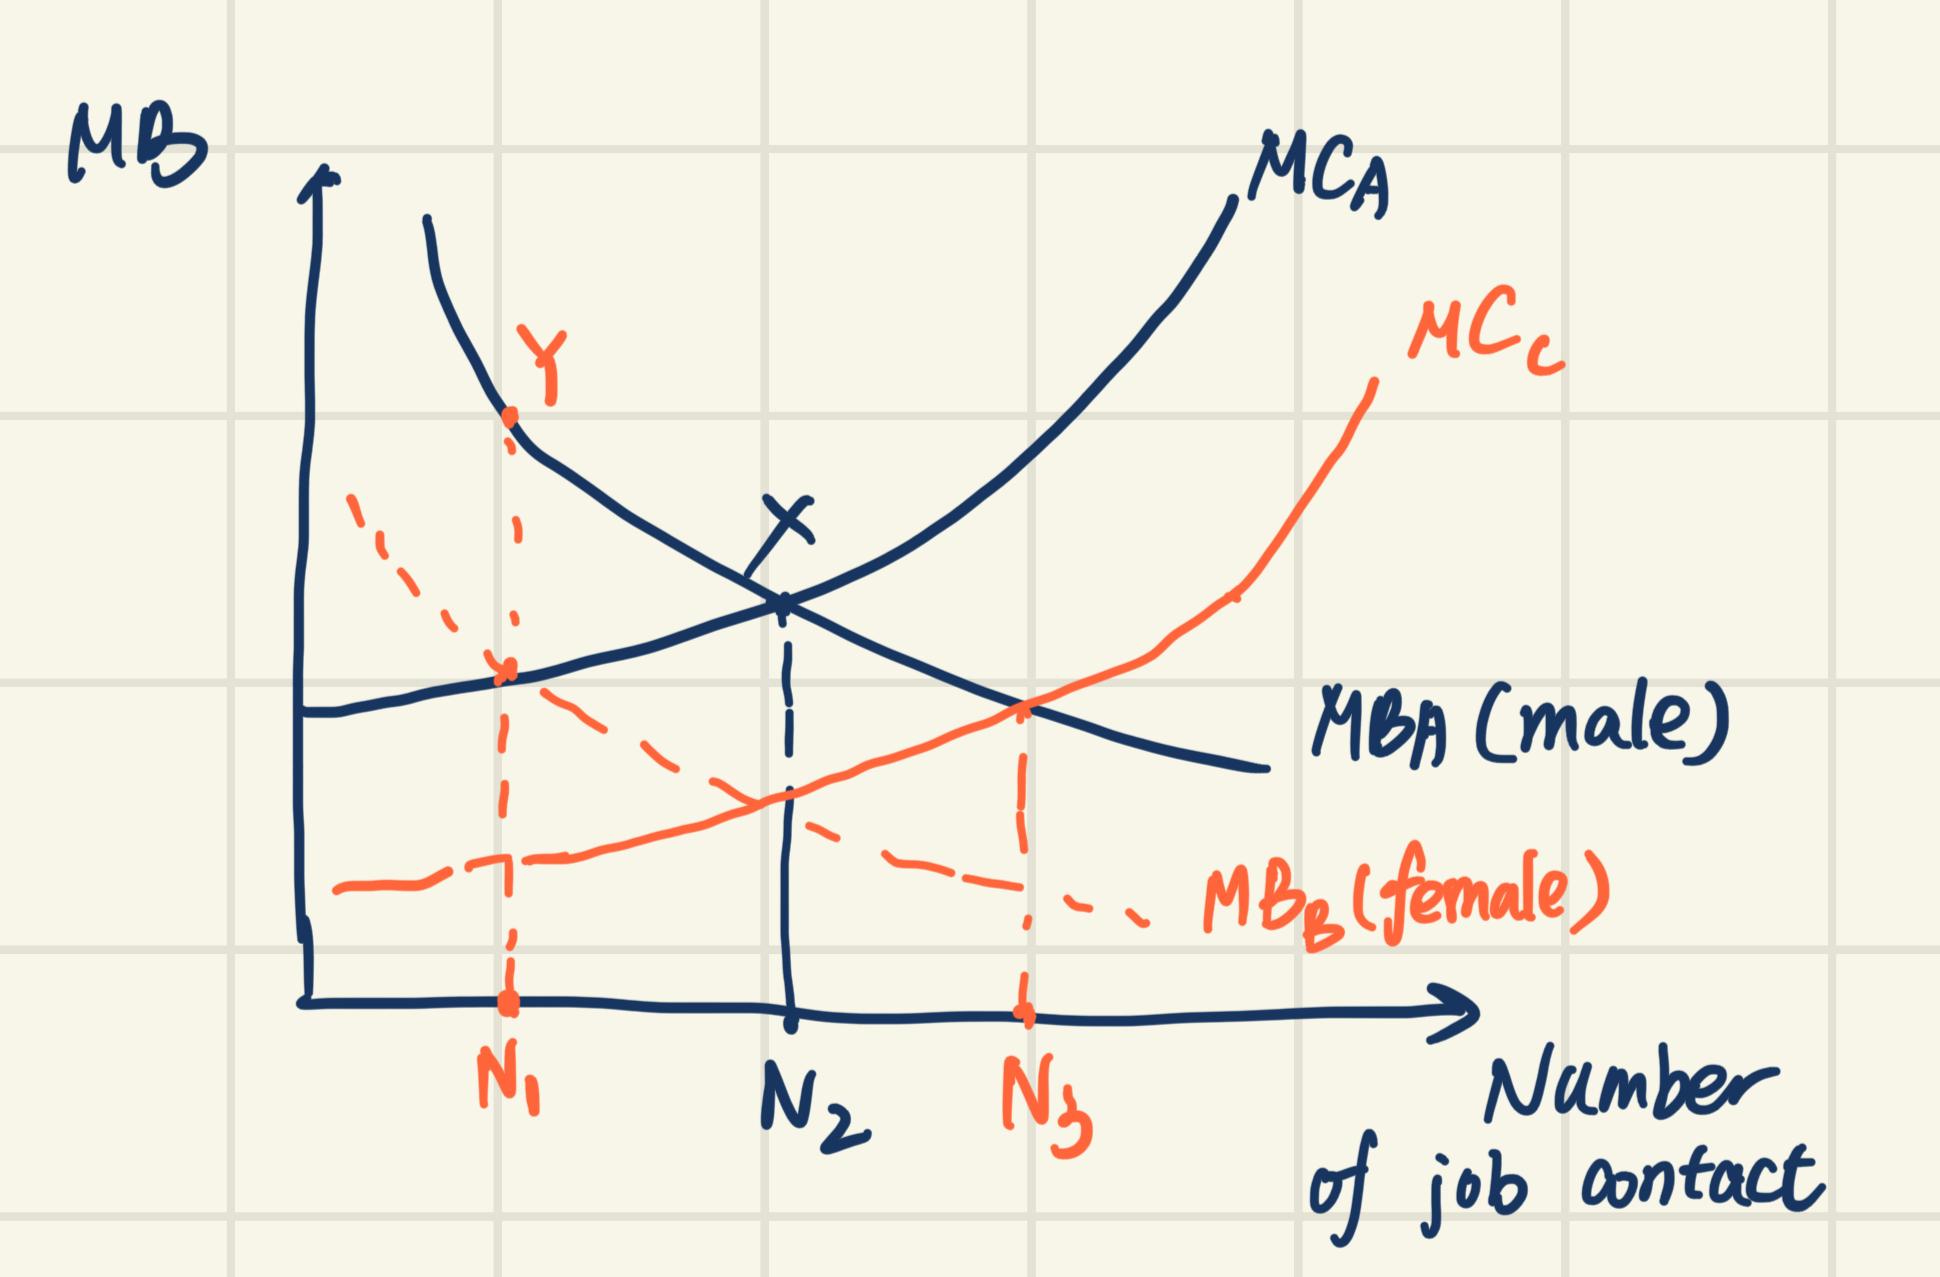 MB
MCA
MCc
Y
X
MBA (male)
MBB (female)
N1
N2
N3
Number
of job contact